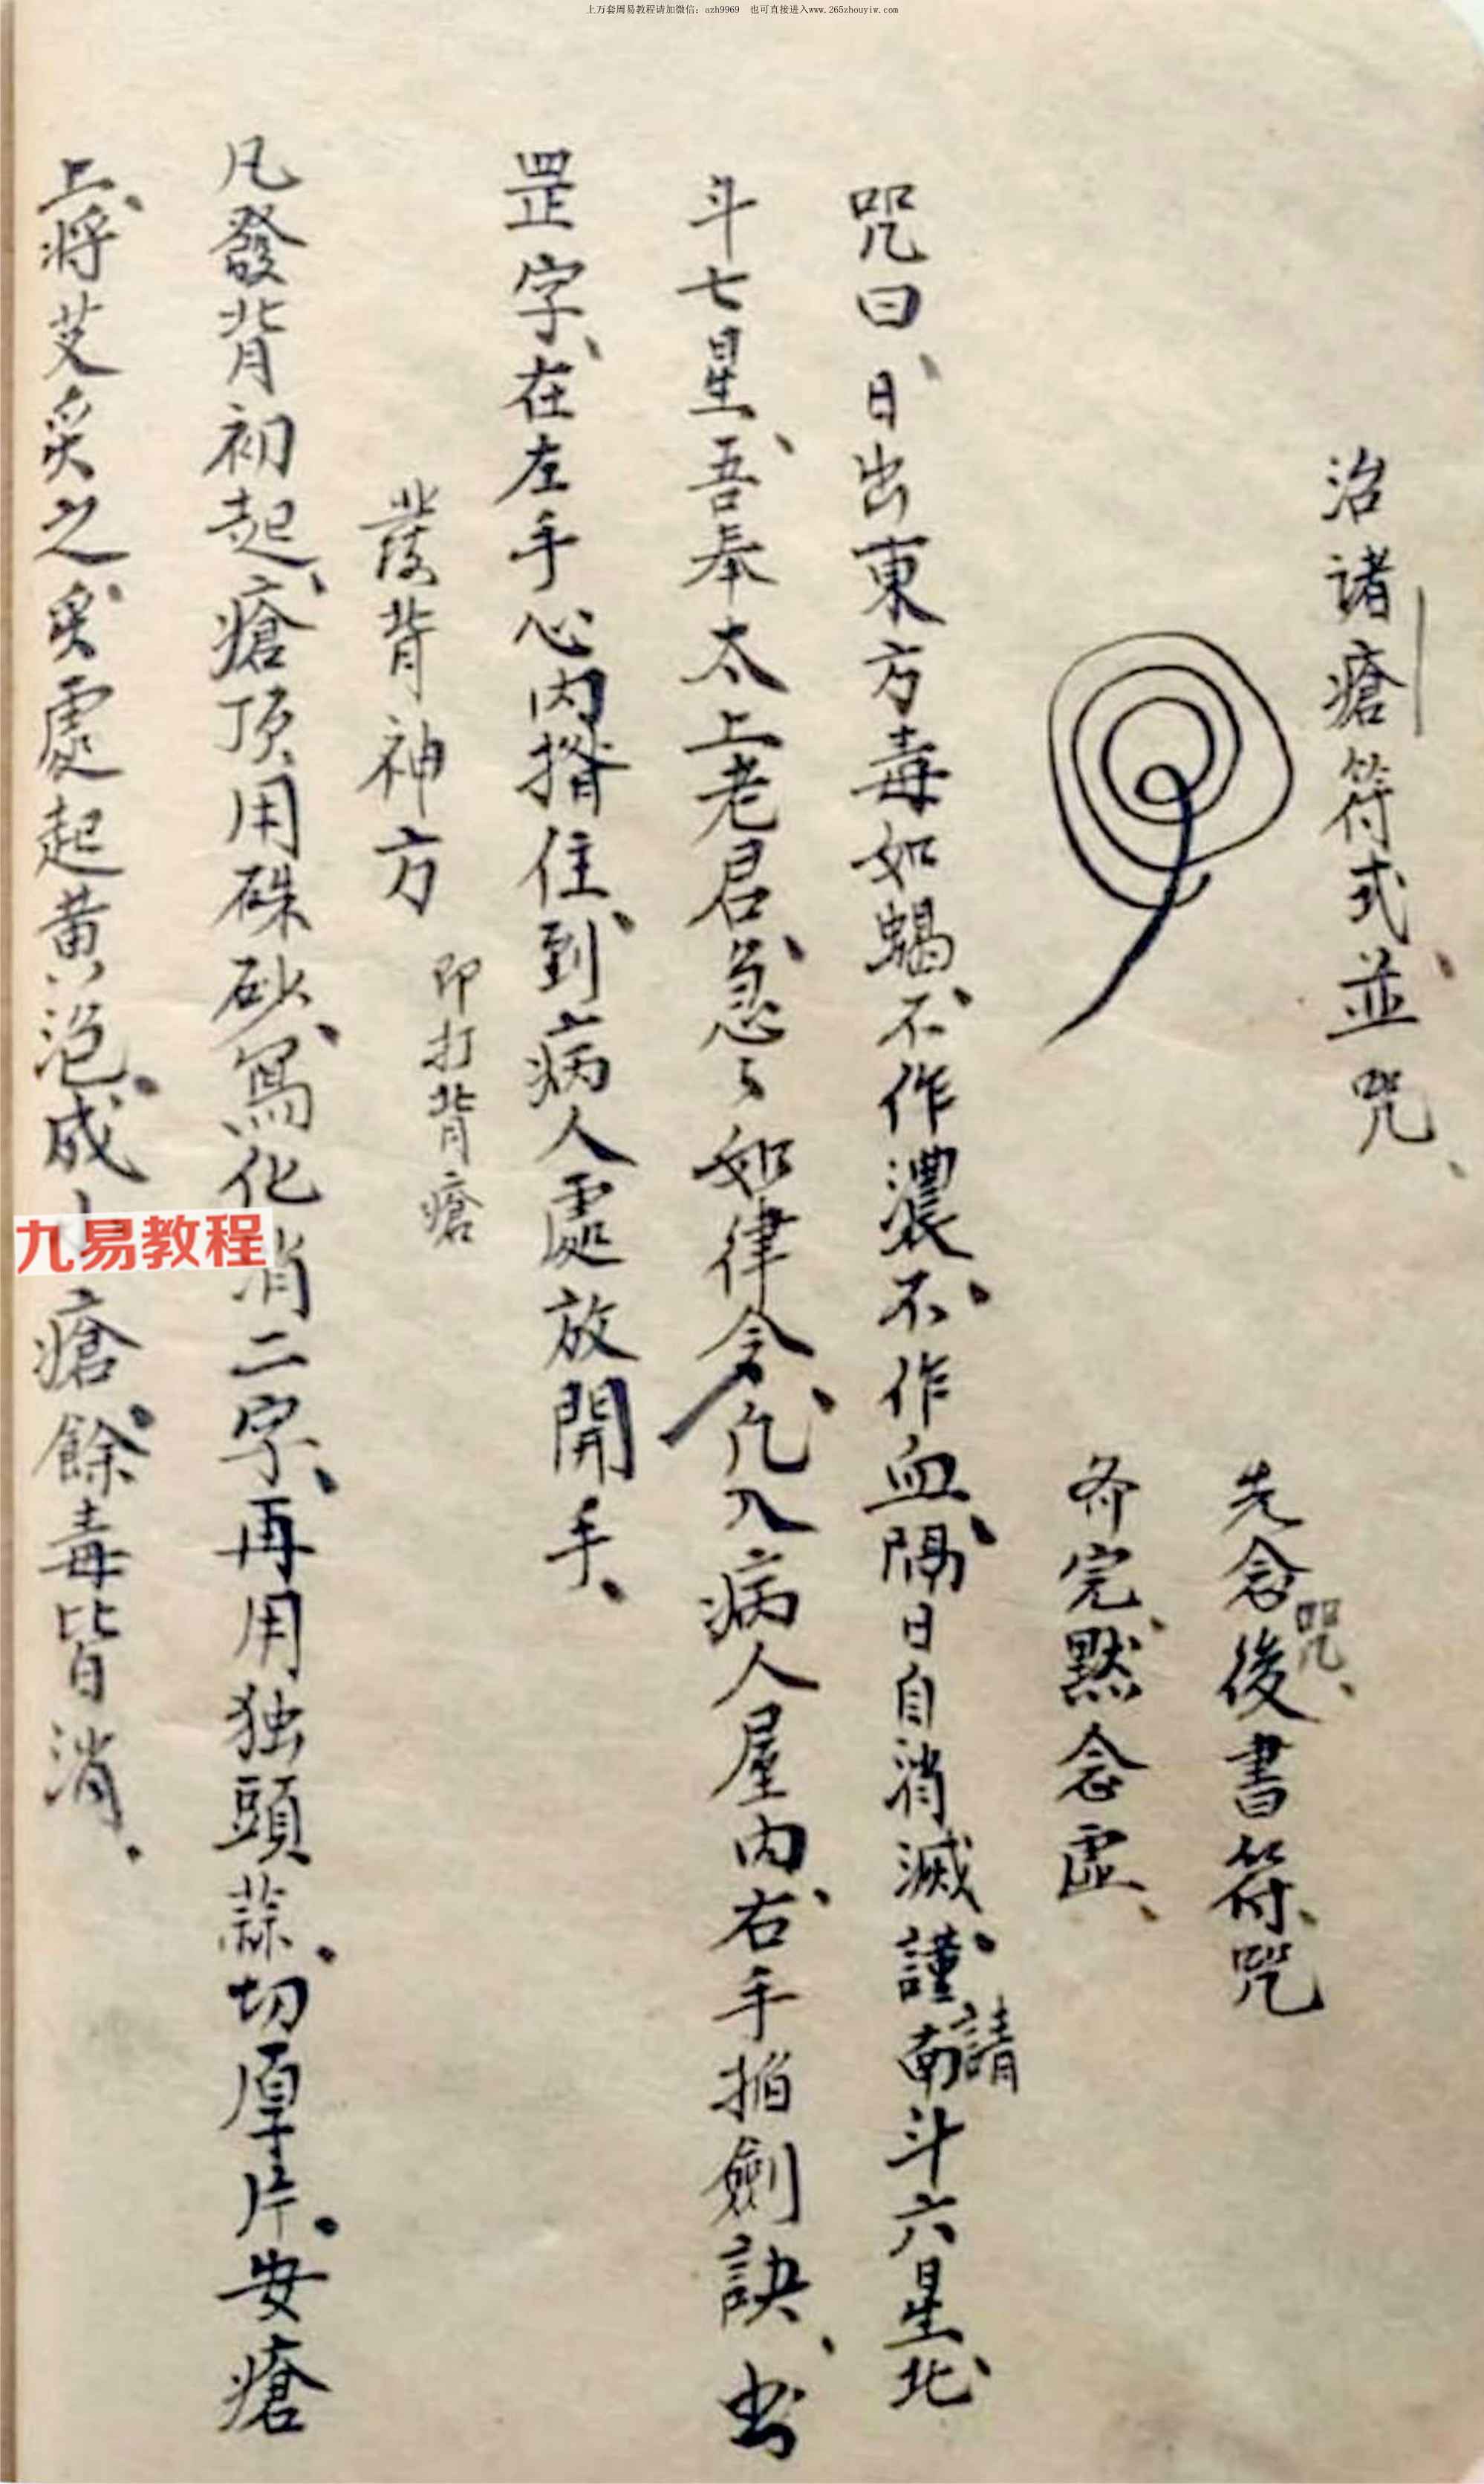 上万套周易教程请加微信：azh9969 也可直接进入www.265zhouyiw.com
治諸瘡符式並咒、
先念咒、後書符、咒
齐完、默念虚、
咒曰、日出東方毒如蝎、不作濃、不作血、隔日自消滅、謹請南斗六星、北
斗七星、吾奉太上老君、急々如律令、凢入病人屋内、右手掐劍訣、书
罡字、在左手心内揝住、到病人處放開手、
發背神方 即打背瘡
凡發背初起、瘡頂用硃砂、寫化消二字、再用独頭蒜、切厚片、安瘡
上、將艾炙之、炙處起黄泡、成小瘡、餘毒皆消、
九易教程